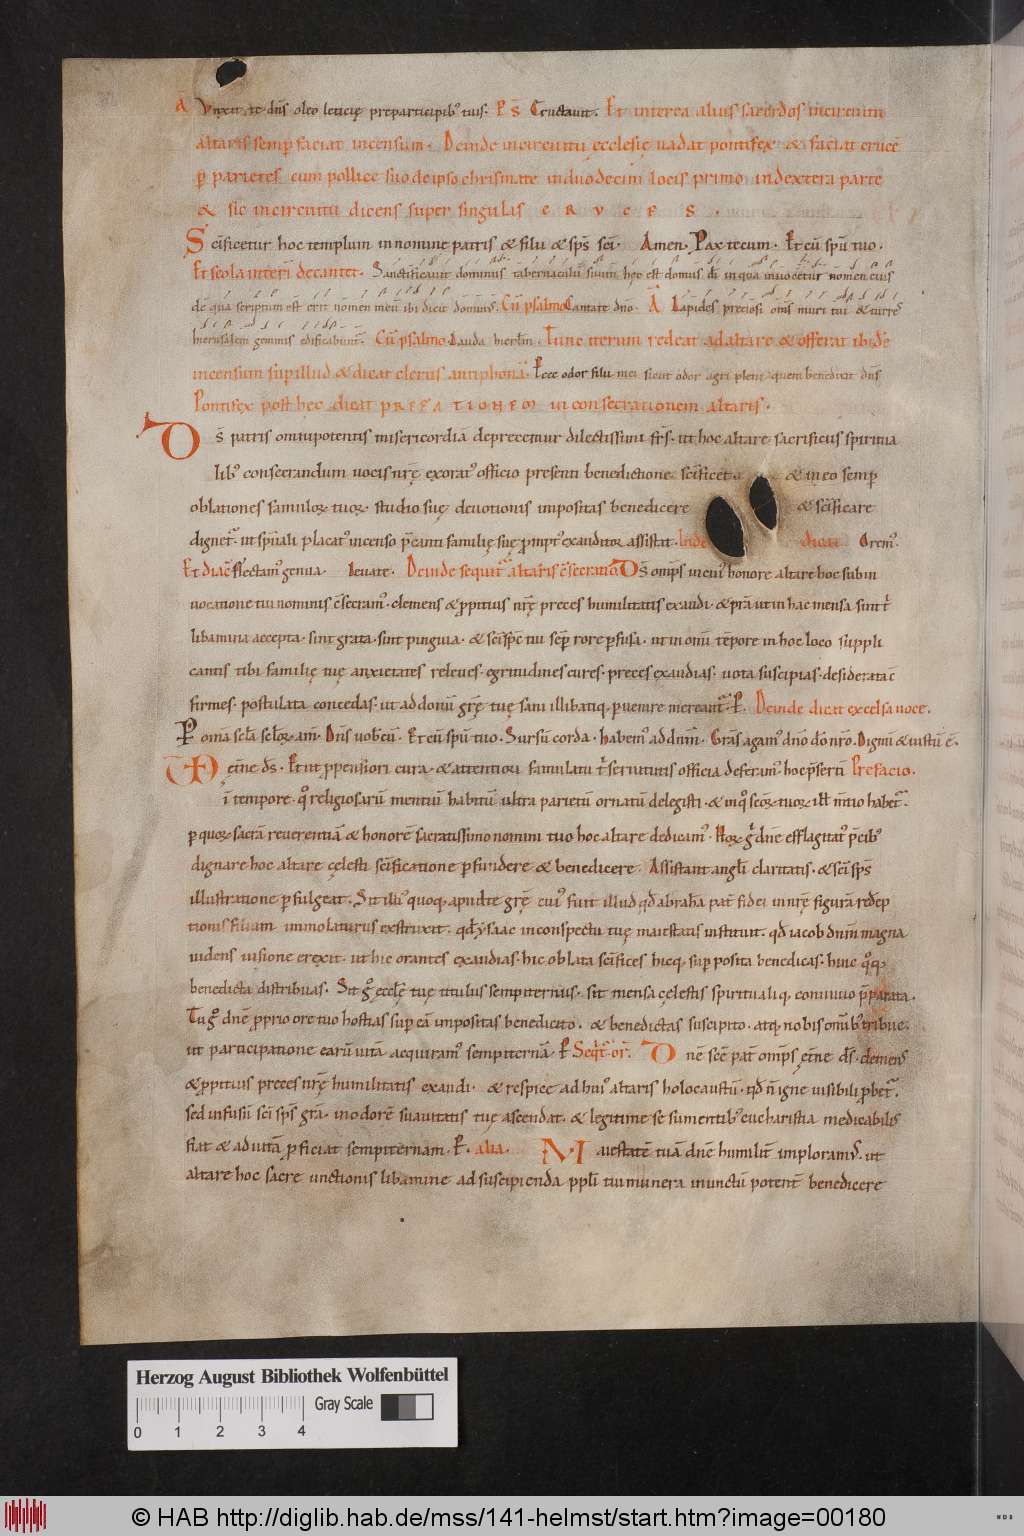 A Vnxit te dn̄s oleo leticię preparticipib' tuis. P S̄ Eructauit. Et interea alius sacerdos incircuitu
altaris semp̄ faciat incensum. Deinde incircuitu ęcclesię uadat pontifex & faciat crucē
ꝑ parietes cum pollice suo de ipso chrismate induodecim locis primo indextera parte
& sic incircuitu dicens super singulas CRVCES.
Scīficetur hoc templum in nomine patris & filii & sp̄s scī. Amen. Pax tecum. Et cū sp̄u tuo.
Et scola interī decantet. Sanctificauit dominus tabernaculū suum hęc est domus dī in qua inuocetur nomen eius
dē qua scriptum est erit nomen meū ibi dicit dominus. Cū psalmo Cantate dn̄o. A Lapides preciosi om̄s muri tui & turres
hierusalem gemmis edificabunt̄. Cū psalmo Lauda hierl̄m. Tunc iterum redeat ad altare & offerat ibidē
incensum sup illud & dicat clerus antiphonā. Ecce odor filii mei sicut odor agri pleni quem benedixit dn̄s
Pontifex post hęc dicat PREFATIONEM in consecrationem altaris.
D s̄ patris omnipotentis misericordiā deprecemur dilectissimi fr̄s. ut hoc altare sacrificiis spiritua
lib' consecrandum uocis nr̄ę exorat' officio presenti benedictione scīficet & in eo semp̄
oblationes famuloꝝ suoꝝ studio suę deuotionis impositas benedicere & scīficare
dignet̄. ut sp̄uali placat' incenso p̄canti familię suę prompt' exauditor assistat. Inde dicat Orem'.
Et diac̄ Flectam' genua. Leuate. Deinde sequit̄ altaris c̄secratio. D s̄ omps in cui' honore altare hoc sub in
uocatione tui nominis c̄secram'. clemens & ppitius nr̄ę preces humilitatis exaudi. & p̄ra ut in hac mensa sint t̄
libamina accepta. sint grata. sint pinguia. & scī sp̄c tui semp̄ rore ꝑfusa. ut in omī tēpore in hoc loco suppli
cantis tibi familię tuę anxietates releues. egritudines cures. preces exaudias. uota suscipias. desiderata c̄
firmes. postulata concedas. ut ad donū gr̄ę tuę sani illibatiq. ꝑuenire mereant̄. P. Deinde dicat excelsa uoce.
P omīa sc̄la scl̄oꝝ. am̄. Dn̄s uob̄cū. Et cū sp̄u tuo. Sursū corda. Habem' ad dn̄m. Grās agam' dn̄o dō nr̄o. Dignū & iustū ē.
VD ęt̄ne ds̄. Et ut ꝓpensiori cura. & attentiori famulatu t̄ seruitutis officia deferam'. hoc p̄serti Prefacio.
ī tempore. q̊ religiosarū mentiū habitū ultra parietū ornatū delegisti.
ꝑ quoꝝ sacrā reuerentiā & honorē sacratissimo nomini tuo hoc altare dedicam'. Hoꝝ g̊ dn̄e efflagitat' p̄cib'
dignare hoc altare cęlesti scīficatione ꝑfundere & benedicere. Assistant angl̄i claritatis. & scī sp̄s
illustratione ꝑfulgeat. Sit illi' quoq. apud te gr̄ę cui' fuit illud qd̄ abrahā pat̄ fidei in nr̄ę figurā redēp
tionis filium immolaturus exstruxit. qd̄ ysaac in conspectu tuę maiestatis instituit. qd̄ iacob dn̄m magna
uidens uisione erexit. ut hic orantes exaudias. hic oblata scīfices hicq. sup̄ posita benedicas. hinc q̊q.
benedicta distribuas. Sit g̊ ęccl̄ę tuę titulus sempiternus. sit mensa cęlestis spiritualiq. conuiuio p̄parata.
Tu g̊ dn̄e ꝓprio ore tuo hostias sup eā impositas benedicito. & benedictas suscipito. atq. nobis omīb' tribue.
ut participatione earū uitā acquiram' sempiternā. P Seqt̄ or̄. D nē scē pat̄ omp̄s ęt̄ne ds̄. clemens
& ppitius preces nr̄ę humilitatis exaudi. & respice ad hui' altaris holocaustū. qd̄ n̄ igne uisibili ꝓbet̄.
sed infusū scī sp̄s grā. in odorē suauitatis tuę ascendat. & legitime se sumentib' eucharistia medicabilis
fiat & ad uitā ꝓficiat sempiternam. P. alia. M aiestatē tuā dn̄e humilit̄ imploram'. ut
altare hoc sacrę unctionis libamine ad suscipienda ppl̄i tui munera inunctū potent̄ benedicere
Herzog August Bibliothek Wolfenbüttel
Gray Scale
0 1 2 3 4
© HAB http://diglib.hab.de/mss/141-helmst/start.htm?image=00180